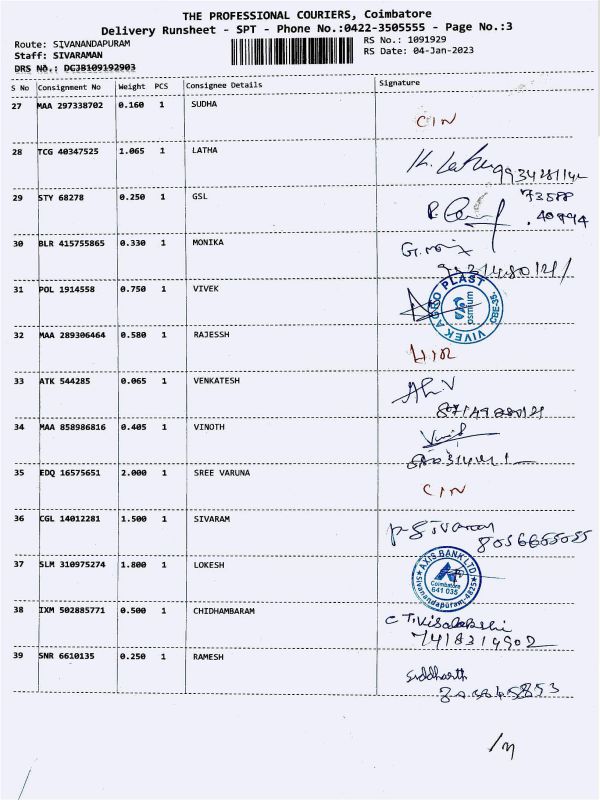 THE PROFESSIONAL COURIERS, Coimbatore
Delivery Runsheet - SPT - Phone No.:0422-3505555 - Page No.:3
Route: SIVANANDAPURAM
RS No.: 1091929
Staff: SIVARAMAN
RS Date: 04-Jan-2023
DRS No.: DCJB109192903
S No Consignment No Weight PCS Consignee Details Signature
27 MAA 297338702 0.160 1 SUDHA
CIN
28 TCG 40347525 1.065 1 LATHA
K. Latha
29 STY 68278 0.250 1 GSL
73588
40994
30 BLR 415755865 0.330 1 MONIKA
31 POL 1914558 0.750 1 VIVEK
VIVEK AGRO PLAST CBE-35. osmium
32 MAA 289306464 0.580 1 RAJESSH
33 ATK 544285 0.065 1 VENKATESH
34 MAA 858986816 0.405 1 VINOTH
35 EDQ 16575651 2.000 1 SREE VARUNA
CIN
36 CGL 14012281 1.500 1 SIVARAM
P. Sivaram
8056665055
37 SLM 310975274 1.800 1 LOKESH
AXIS BANK LTD. Coimbatore 641 035 Sivanandapuram
38 IXM 502885771 0.500 1 CHIDHAMBARAM
C T. Visalakshi
7418314902
39 SNR 6610135 0.250 1 RAMESH
Siddharth